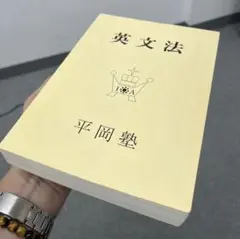 英文法
平岡塾